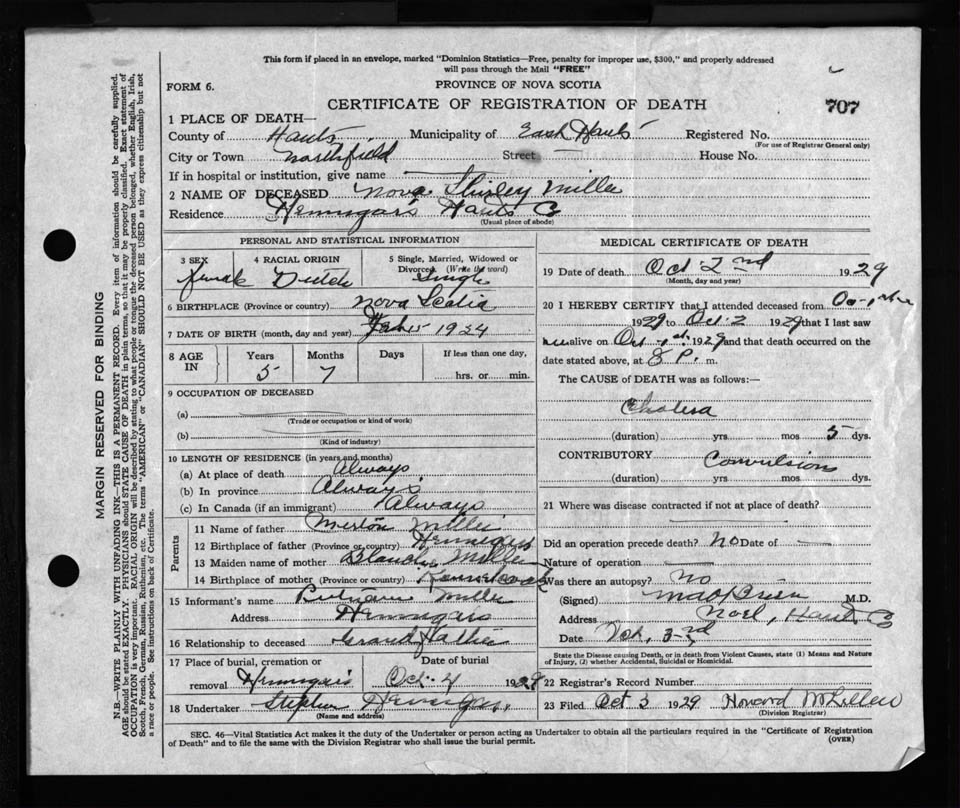 This form if placed in an envelope, marked "Dominion Statistics—Free, penalty for improper use, $300," and properly addressed
will pass through the Mail "FREE"
FORM 6.
PROVINCE OF NOVA SCOTIA
CERTIFICATE OF REGISTRATION OF DEATH
707
1 PLACE OF DEATH—
County of Hants Municipality of East Hants Registered No.
(For use of Registrar General only)
City or Town Northfield Street House No.
If in hospital or institution, give name
2 NAME OF DECEASED Nova Shirley Miller
Residence Hennigars Hants Co
(Usual place of abode)
PERSONAL AND STATISTICAL INFORMATION
3 SEX 4 RACIAL ORIGIN 5 Single, Married, Widowed or
Divorced (Write the word)
Female Dutch Single
6 BIRTHPLACE (Province or country) Nova Scotia
7 DATE OF BIRTH (month, day and year) 1924
8 AGE IN Years Months Days If less than one day,
5 7 hrs. or min.
9 OCCUPATION OF DECEASED
(a)
(Trade or occupation or kind of work)
(b)
(Kind of industry)
10 LENGTH OF RESIDENCE (in years and months)
(a) At place of death Always
(b) In province Always
(c) In Canada (if an immigrant) Always
Parents
11 Name of father Merton Miller
12 Birthplace of father (Province or country) Hennigars
13 Maiden name of mother Miller
14 Birthplace of mother (Province or country)
15 Informant's name Miller
Address Hennigars
16 Relationship to deceased Grand Father
17 Place of burial, cremation or Date of burial
removal Hennigars Oct. 4 1929
18 Undertaker Stephen Hennigar
(Name and address)
MEDICAL CERTIFICATE OF DEATH
19 Date of death Oct 2nd 1929
(Month, day and year)
20 I HEREBY CERTIFY that I attended deceased from
1929 to Oct. 2 1929 that I last saw
alive on Oct 1st 1929 and that death occurred on the
date stated above, at 8 P. m.
The CAUSE of DEATH was as follows:—
Cholera
(duration) yrs mos 5 dys.
CONTRIBUTORY Convulsions
(duration) yrs mos dys.
21 Where was disease contracted if not at place of death?
Did an operation precede death? No Date of
Nature of operation
Was there an autopsy? No
(Signed) M.D.
Address Noel, Hants Co
Date 3rd
State the Disease causing Death, or in death from Violent Causes, state (1) Means and Nature
of Injury, (2) whether Accidental, Suicidal or Homicidal.
22 Registrar's Record Number
23 Filed Oct 3 1929 Howard McLellan
(Division Registrar)
SEC. 46—Vital Statistics Act makes it the duty of the Undertaker or person acting as Undertaker to obtain all the particulars required in the "Certificate of Registration
of Death" and to file the same with the Division Registrar who shall issue the burial permit.
(OVER)
MARGIN RESERVED FOR BINDING
N.B.—WRITE PLAINLY WITH UNFADING INK—THIS IS A PERMANENT RECORD. Every item of information should be carefully supplied.
AGE should be stated EXACTLY. PHYSICIANS should STATE CAUSE OF DEATH in plain terms, so that it may be properly classified. Exact statement of
OCCUPATION is very important. RACIAL ORIGIN will be described by stating to what people or tongue the deceased person belonged, whether English, Irish,
Scotch, French, German, Russian, Ruthenian, etc. The terms "AMERICAN" or "CANADIAN" SHOULD NOT BE USED as they express citizenship but not
a race or people. See instructions on back of Certificate.